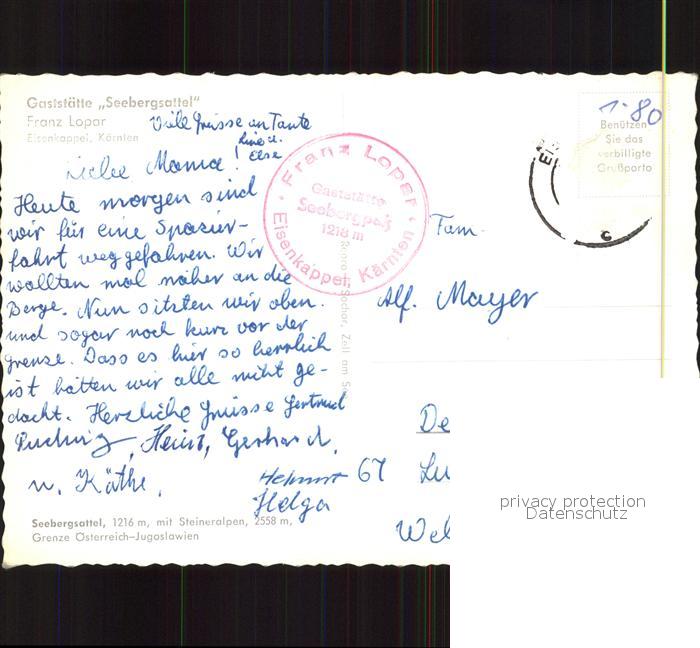 Gaststätte „Seebergsattel"
Franz Lopar
Eisenkappel, Kärnten
Viele Grüsse an Tante
Line u.
Else
Liebe Mama!
Heute morgen sind
wir für eine Spazier-
fahrt weggefahren. Wir
wollten mal näher an die
Berge. Nun sitzten wir oben.
und sogar noch kurz vor der
Grenze. Dass es hier so herrlich
ist hätten wir alle nicht ge-
dacht. Herzliche Grüsse Gertrud
Heinz, Gerhard,
u. Käthe,
Helmut
Helga
Seebergsattel, 1216 m, mit Steineralpen, 2558 m,
Grenze Österreich-Jugoslawien
Franz Lopar
Gaststätte
Seebergpaß
1218 m
Eisenkappel, Kärnten
Zell am See
1.80
Benützen
Sie das
verbilligte
Grußporto
EI
c
Fam.
Alf. Mayer
De
67 Lu
Wel
privacy protection
Datenschutz